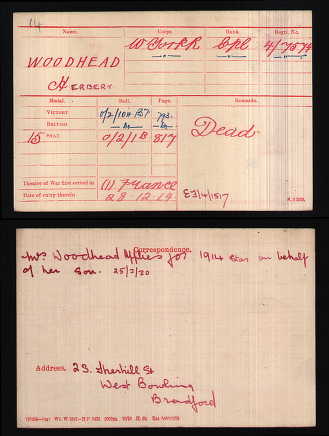 14
Name. Corps. Rank. Regtl. No.
WOODHEAD W York R Cpl 4/7579
Herbert
Medal. Roll. Page. Remarks.
VICTORY 0/2/104 B7 793.
BRITISH do do Dead
15 STAR 0/2/1B 817
Theatre of War first served in (1) France
Date of entry therein E3/4/1517
Correspondence.
Mrs Woodhead applies for 1914 Star on behalf
of her son. 25/2/20
Address. 23. St
West Bowling
Bradford